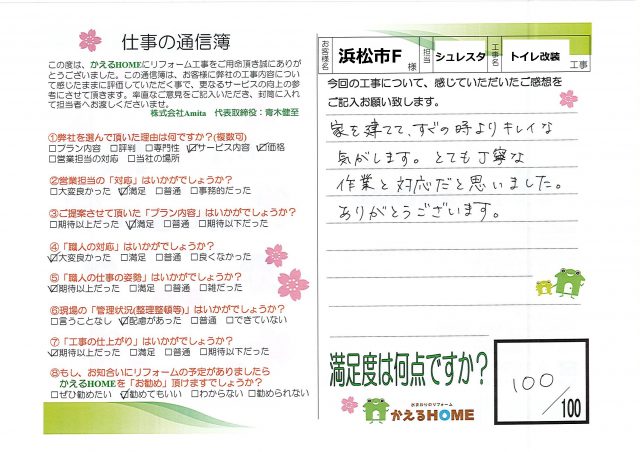 仕事の通信簿
この度は、かえるHOMEにリフォーム工事をご用命頂き誠にありが
とうございました。この通信簿は、お客様に弊社の工事内容につい
て感じたままに評価していただく事で、更なるサービスの向上の参
考にさせて頂きます。率直なご意見をご記入いただき、封筒に入れ
て担当者へお渡しくださいませ。
株式会社Amita 代表取締役：青木健至
①弊社を選んで頂いた理由は何ですか?(複数可)
□プラン内容 □評判 □専門性 ☑サービス内容 ☑価格
□営業担当の対応 □当社の場所
②営業担当の「対応」はいかがでしょうか?
□大変良かった ☑満足 □普通 □事務的だった
③ご提案させて頂いた「プラン内容」はいかがでしょうか?
□期待以上だった ☑満足 □普通 □期待以下だった
④「職人の対応」はいかがでしょうか?
☑大変良かった □満足 □普通 □良くなかった
⑤「職人の仕事の姿勢」はいかがでしょうか?
☑期待以上だった □満足 □普通 □雑だった
⑥現場の「管理状況(整理整頓等)」はいかがでしょうか?
□言うことなし ☑配慮があった □普通 □できていない
⑦「工事の仕上がり」はいかがでしょうか?
☑期待以上だった □満足 □普通 □期待以下だった
⑧もし、お知合いにリフォームの予定がありましたら
かえるHOMEを「お勧め」頂けますでしょうか?
□ぜひ勧めたい ☑勧めてもいい □わからない □勧められない
お客様名 浜松市F 様 担当 シュレスタ 工事名 トイレ改装 工事
今回の工事について、感じていただいたご感想を
ご記入お願い致します。
家を建てて、すぐの時よりキレイな
気がします。とても丁寧な
作業と対応だと思いました。
ありがとうございます。
満足度は何点ですか?
100/100
水まわりのリフォーム
かえるHOME